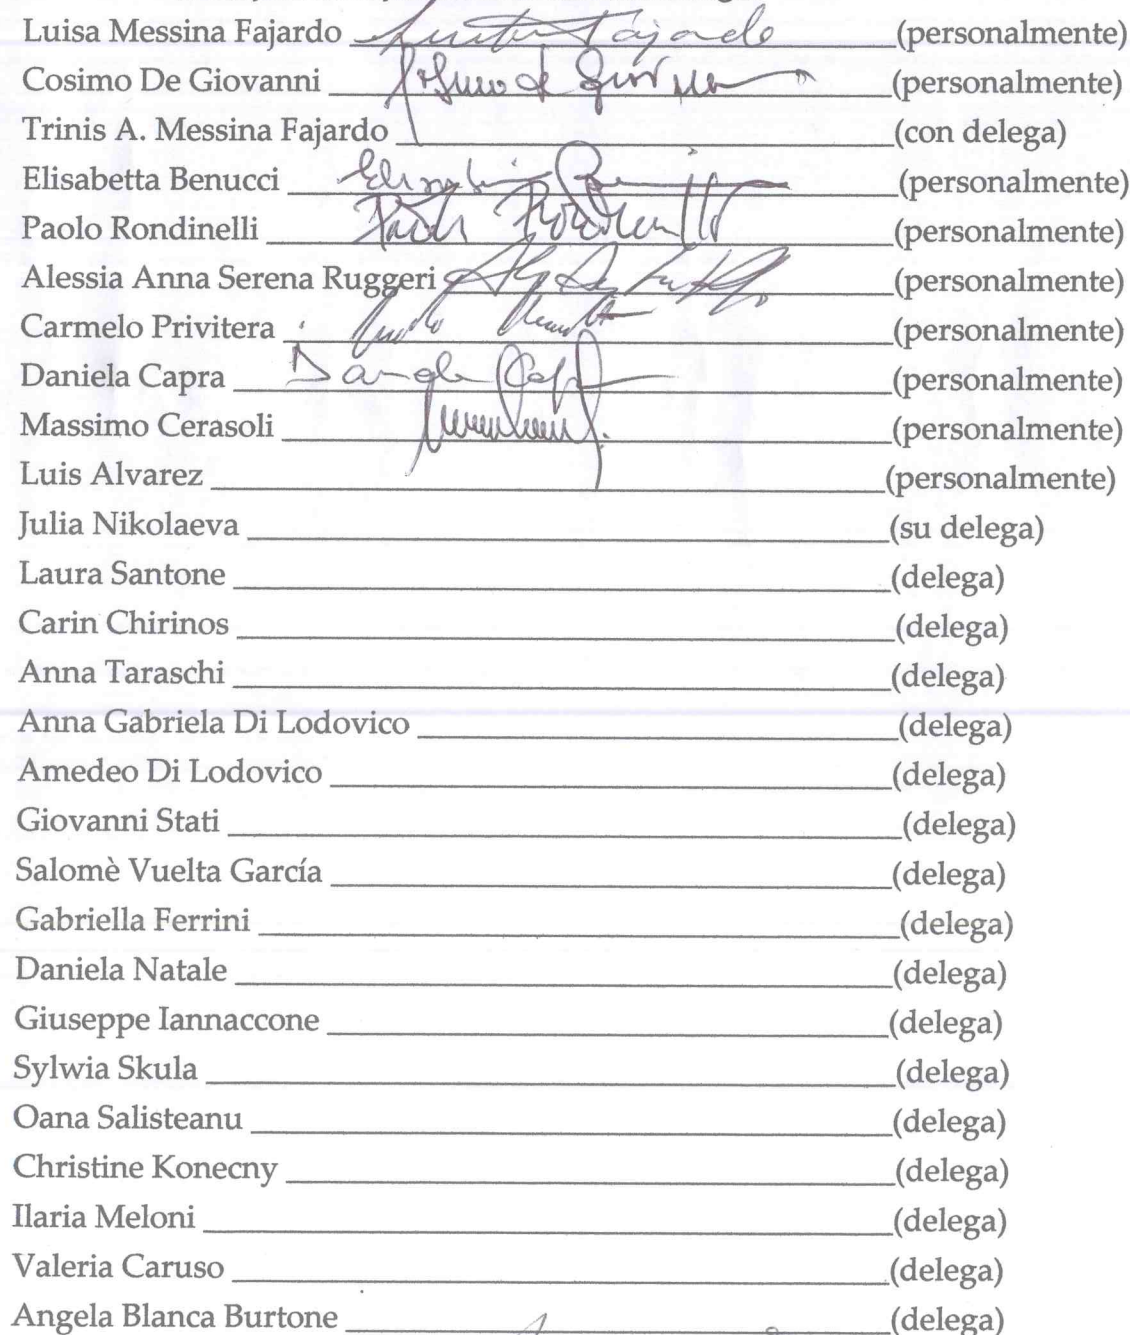 Luisa Messina Fajardo Luisa Fajardo (personalmente)
Cosimo De Giovanni Cosimo de Giovanni (personalmente)
Trinis A. Messina Fajardo (con delega)
Elisabetta Benucci Elisabetta (personalmente)
Paolo Rondinelli Paolo Rondinelli (personalmente)
Alessia Anna Serena Ruggeri (personalmente)
Carmelo Privitera (personalmente)
Daniela Capra Daniela Capra (personalmente)
Massimo Cerasoli (personalmente)
Luis Alvarez (personalmente)
Julia Nikolaeva (su delega)
Laura Santone (delega)
Carin Chirinos (delega)
Anna Taraschi (delega)
Anna Gabriela Di Lodovico (delega)
Amedeo Di Lodovico (delega)
Giovanni Stati (delega)
Salomè Vuelta García (delega)
Gabriella Ferrini (delega)
Daniela Natale (delega)
Giuseppe Iannaccone (delega)
Sylwia Skula (delega)
Oana Salisteanu (delega)
Christine Konecny (delega)
Ilaria Meloni (delega)
Valeria Caruso (delega)
Angela Blanca Burtone (delega)